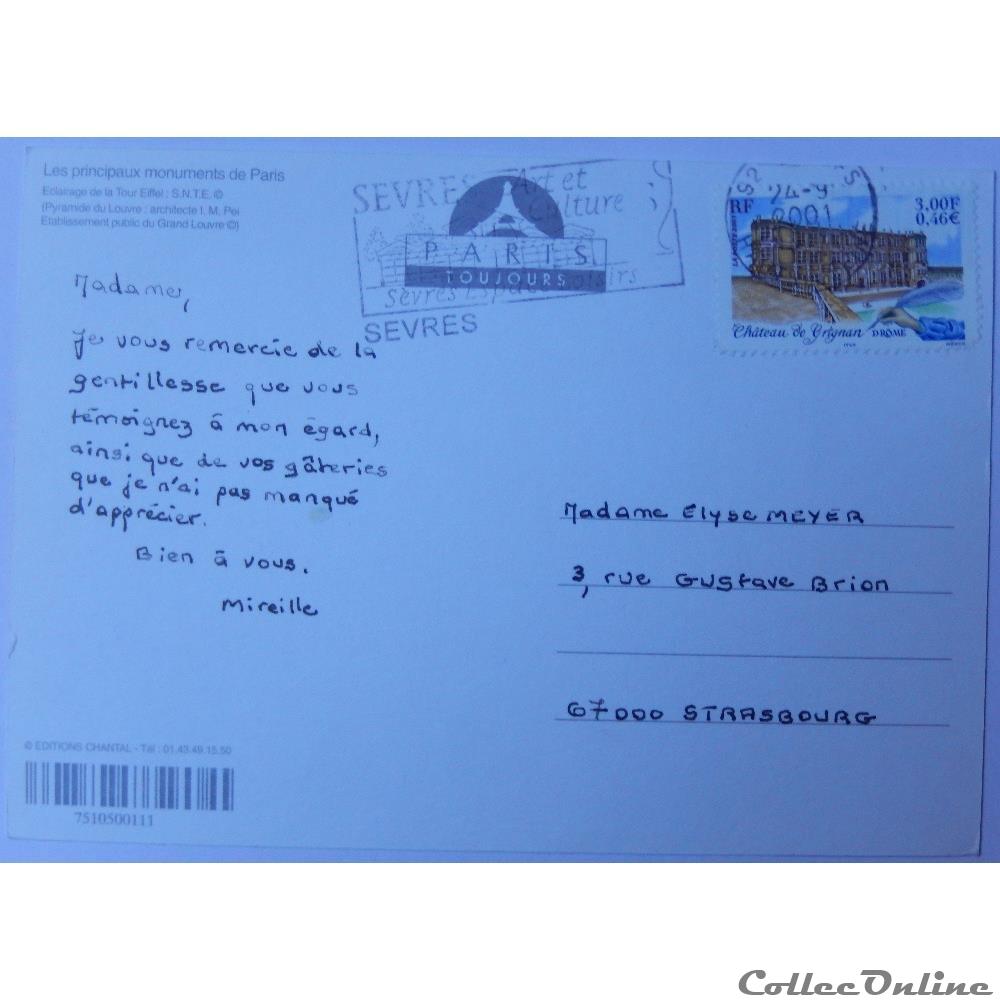 Les principaux monuments de Paris
Eclairage de la Tour Eiffel : S.N.T.E. ©
(Pyramide du Louvre : architecte I. M. Pei
Etablissement public du Grand Louvre ©)
SEVRES Art et
Culture
PARIS
TOUJOURS
Sèvres Espace Loisirs
SEVRES
24-9
2001
RF 3,00F
0,46€
Château de Grignan DRÔME
Madame,
Je vous remercie de la
gentillesse que vous
témoignez à mon égard,
ainsi que de vos gâteries
que je n'ai pas manqué
d'apprécier.
Bien à vous.
Mireille
Madame Élyse MEYER
3, rue Gustave Brion
67000 STRASBOURG
© EDITIONS CHANTAL - Tél : 01.43.49.15.50
7510500111
CollecOnline